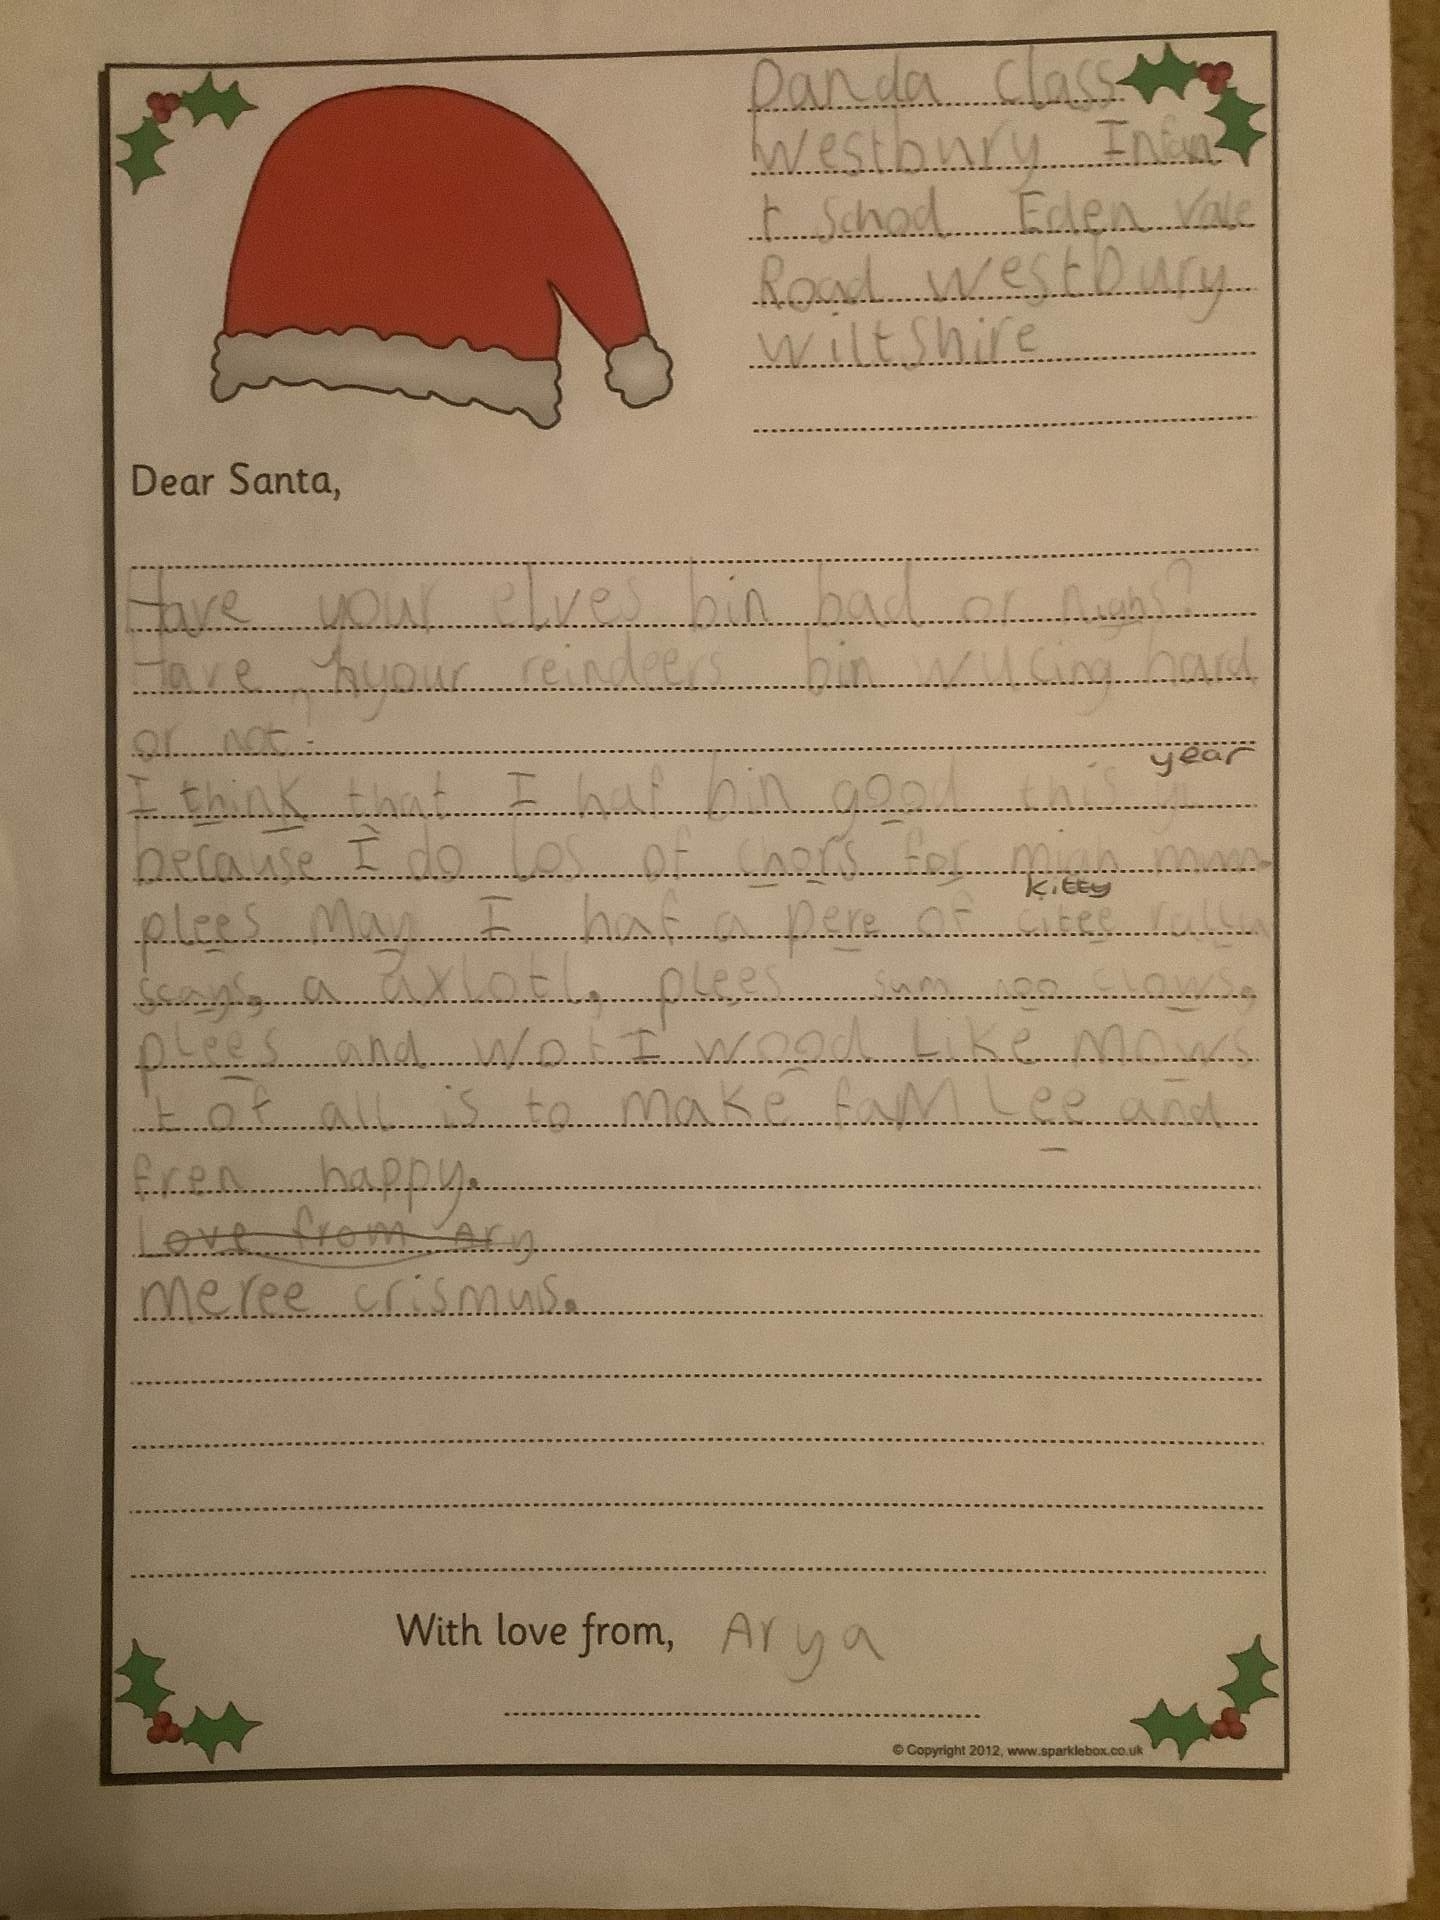 Panda Class
Westbury Infan
t School Eden Vale
Road Westbury
Wiltshire
Dear Santa,
Have your elves bin bad or
Have your reindeers bin wucing hard
or not.
year
I think that I haf bin good this
because I do los of chors for migh mum.
kitty
plees may I haf a pere of citee
scays, a axlotl, plees sum noo clows,
plees and wot I wood Like mows
t of all is to make famLee and
fren happy.
Love from Ary
meree crismus.
With love from, Arya
© Copyright 2012, www.sparklebox.co.uk